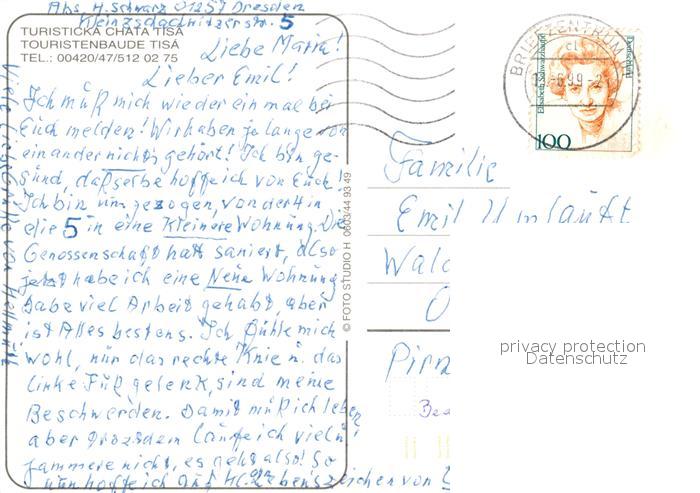 Abs. H. Schwarz 01257 Dresden
Kleinzschachwitzerstr. 5
TURISTICKÁ CHATA TISÁ
TOURISTENBAUDE TISÁ
TEL.: 00420/47/512 02 75
Liebe Maria!
Lieber Emil!
Ich muß mich wieder ein mal bei
Euch melden! Wir haben ja lange von
einander nichts gehört! Ich bin ge-
sund, dasselbe hoffe ich von Euch!
Ich bin umgezogen, von der 4 in
die 5 in eine Kleinere Wohnung. Die
Genossenschaft hatt saniert, also
jetzt habe ich eine Neue Wohnung
habe viel Arbeit gehabt, aber
ist Alles bestens. Ich fühle mich
wohl, nur das rechte Knie u. das
linke Fußgelenk, sind meine
Beschwerden. Damit muß ich leben
aber trozsdem laufe ich viel u.
jammere nicht, es geht also! So
nun hoffe ich auf Lebenszeichen von
Viele liebe Grüße von Hellmut
© FOTO STUDIO H 0603/44 93 49
BRIEFZENTRUM
Elisabeth Schwarzhaupt
Deutschland
100
Familie
Emil Umlauft
Wald
Pirn
privacy protection
Datenschutz